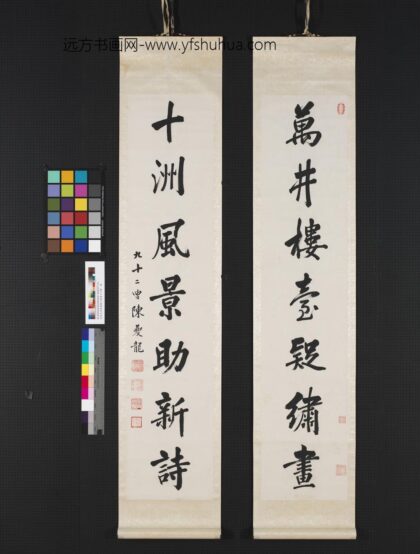 远方书画网-www.yfshuhua.com
萬井樓臺疑繡畫
十洲風景助新詩
九十二叟陳夔龍